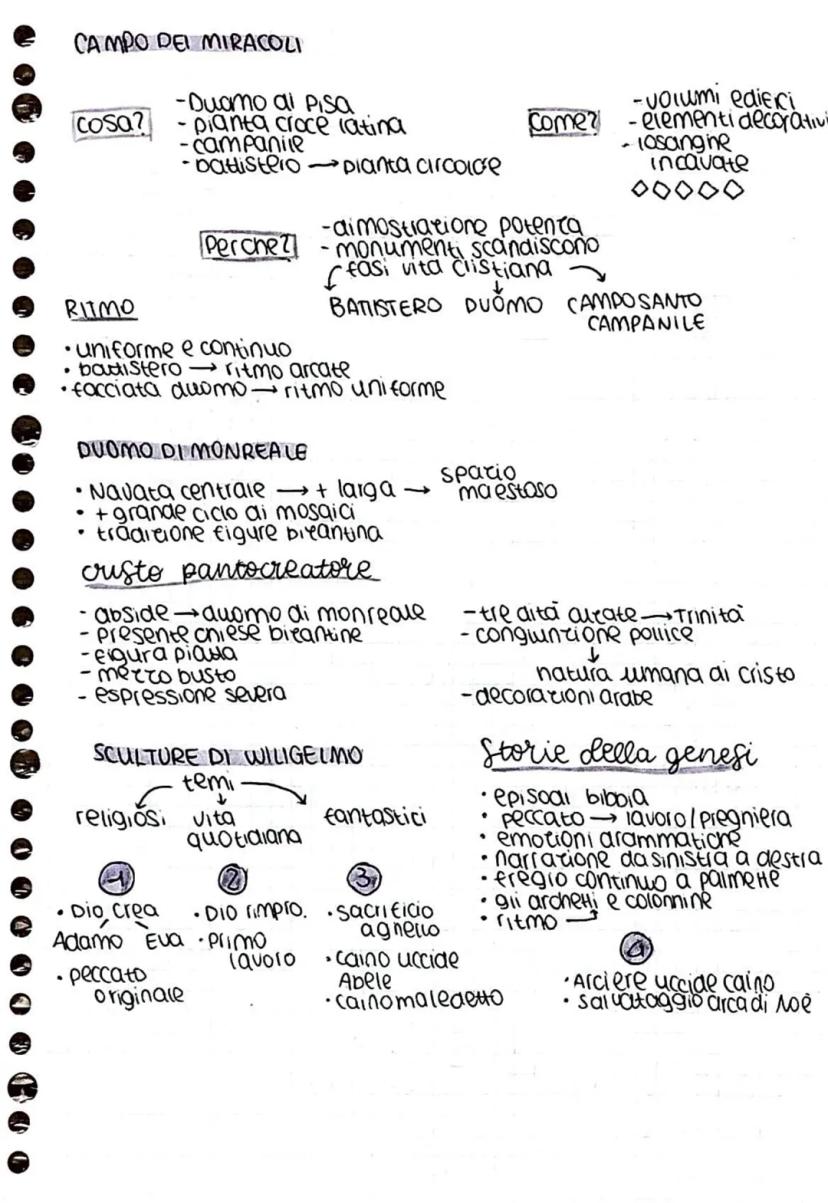 CAMPO DEI MIRACOLI
COSA?
- Duomo di Pisa
- pianta croce latina
- campanile
- battistero → pianta circolare
COME?
- volumi edifici
- elementi decorativi
- losanghe
incavate
Perche?
- dimostrazione potenza
- monumenti scandiscono
fasi vita cristiana
BATTISTERO DUOMO CAMPOSANTO
CAMPANILE
RITMO
• uniforme e continuo
• battistero → ritmo arcate
• facciata duomo → ritmo uniforme
DUOMO DI MONREALE
• Navata centrale → + larga → spazio
maestoso
• + grande ciclo di mosaici
• tradizione figure bizantina
cristo pantocreatore
- abside → duomo di monreale
- presente chiese bizantine
- figura piatta
- mezzo busto
- espressione severa
- tre dita alzate → Trinità
- congiunzione pollice
↓
natura umana di cristo
- decorazioni arabe
SCULTURE DI WILIGELMO
temi
religiosi vita fantastici
quotidiana
1
• Dio crea
Adamo Eva
• peccato
originale
2
• Dio rimpro.
• primo
lavoro
3
• sacrificio
agnello
• caino uccide
Abele
• caino maledetto
Storie della genesi
• episodi bibbia
• peccato → lavoro/pregniera
• emozioni drammatiche
• narrazione da sinistra a destra
• fregio continuo a palmette
• gli archetti e colonnine
• ritmo
4
• Arciere uccide caino
• salvataggio arca di Noè